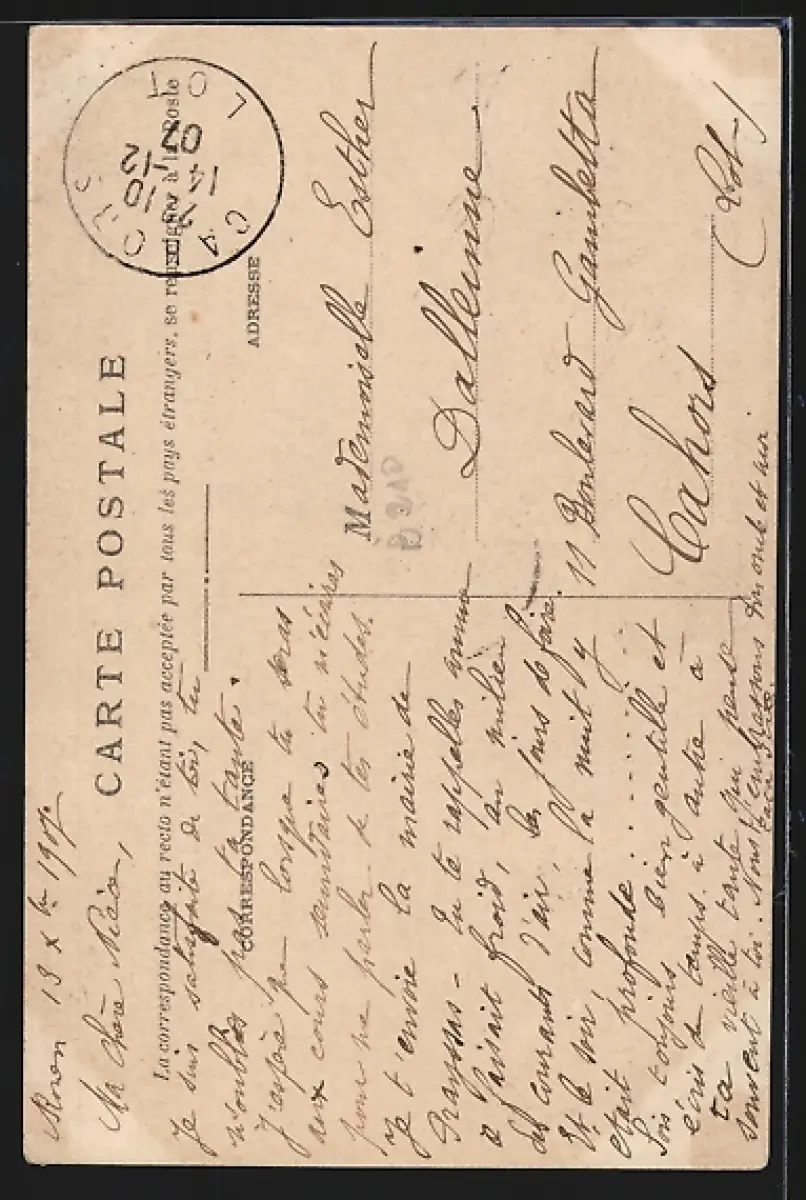 CARTE POSTALE
La correspondance au recto n'étant pas acceptée par tous les pays étrangers, se renseigner à la Poste
CORRESPONDANCE
ADRESSE
CAHORS
LOT
14 -12
07
Rouen 13 Xbre 1907
Ma chère Nièce,
Je suis satisfaite de toi, tu
n'oublies pas ta tante.
J'espère que lorsque tu seras
aux cours secondaires tu m'écriras
pour me parler de tes études.
Je t'envoie la mairie de
Grayssas - Tu te rappelles comme
il faisait froid, au milieu
des courants d'air, les jours de foire.
Et le soir, comme la nuit y
était profonde.......
Sois toujours bien gentille et
écris de temps à autre à
ta vieille tante qui pense
souvent à toi. Nous t'embrassons ton oncle et moi
Mademoiselle Esther
Dalleinne
11 Boulevard Gambetta
Cahors
(Lot)
B 310